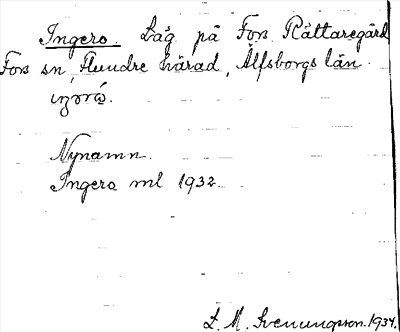 Ingero. Låg på Fors Rättaregård
Fors sn, Flundre härad, Älfsborgs län.
Nynamn.
Ingero ml 1932.
L. M. Svenungsson. 1934.